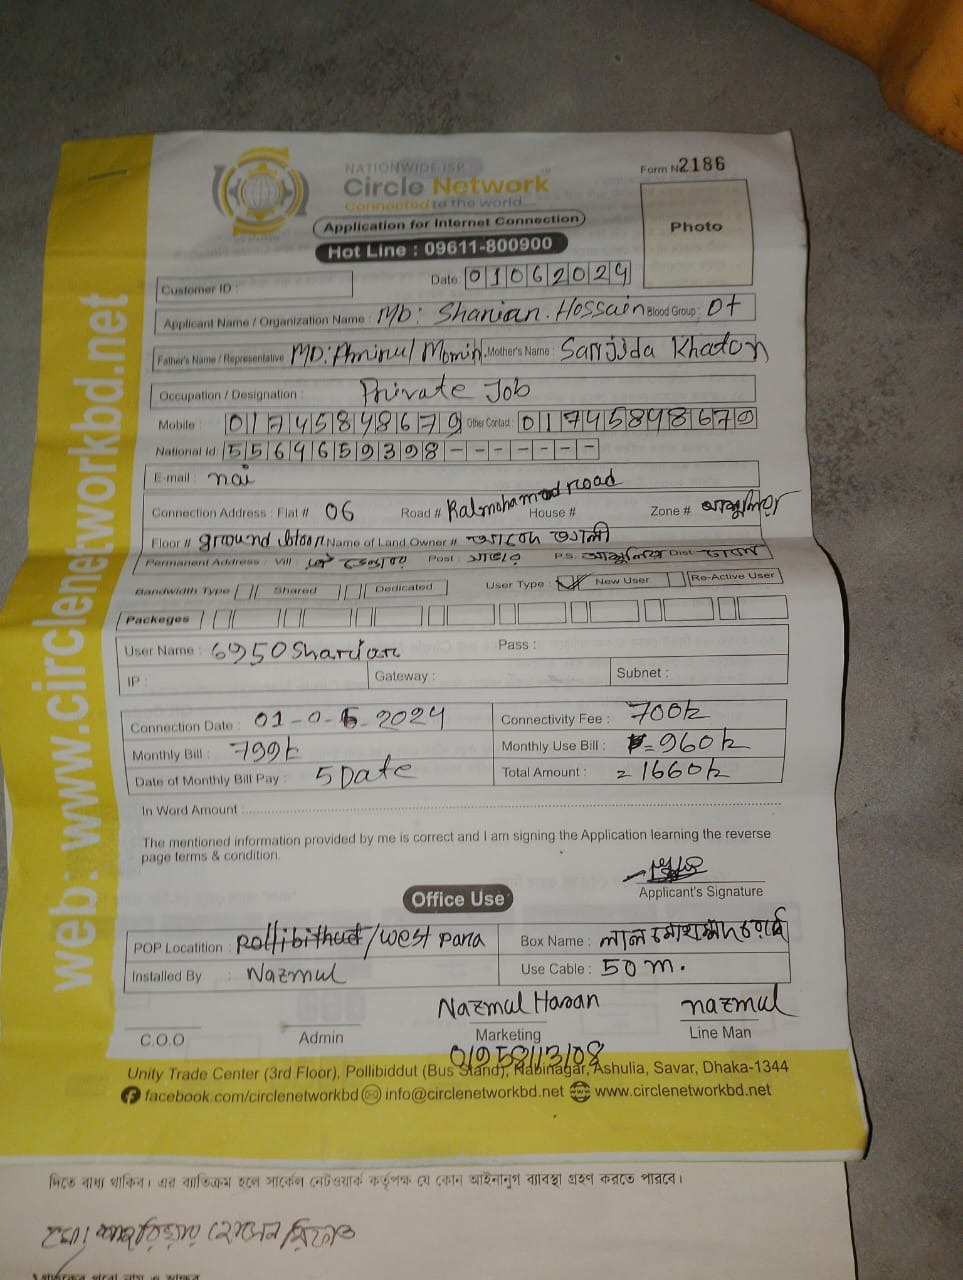 NATIONWIDE ISP
Circle Network
Connected to the world
Form No 2186
Photo
Application for Internet Connection
Hot Line : 09611-800900
Customer ID :
Date: 01062024
Applicant Name / Organization Name : MD: Sharian. Hossain Blood Group: O+
Father's Name / Representative MD: Aminul Momin. Mother's Name : Sanjida Khaton
Occupation / Designation : Private Job
Mobile : 01745848679 Other Contact : 01745848679
National Id 5564659398-------
E-mail : nai
Connection Address : Flat # 06 Road # Ralmohamad road House # Zone #
Floor # ground Name of Land Owner # আলী
Permanent Address : Vill : Post : সাভার P.S. Dist: ঢাকা
Bandwidth Type Shared Dedicated User Type : ✓ New User Re-Active User
Packeges
User Name : 6950Sharian Pass :
IP : Gateway : Subnet :
Connection Date : 01-06-2024 Connectivity Fee : 700k
Monthly Bill : 799k Monthly Use Bill : = 960k
Date of Monthly Bill Pay : 5 Date Total Amount : = 1660k
In Word Amount :
The mentioned information provided by me is correct and I am signing the Application learning the reverse
page terms & condition.
Applicant's Signature
Office Use
POP Locatition : Pollibithut/west para Box Name : লাল
Installed By : Nazmul Use Cable : 50 m.
Nazmul Hasan nazmul
C.O.O Admin Marketing Line Man
01958113108
Unity Trade Center (3rd Floor), Pollibiddut (Bus Stand), Nabinagar, Ashulia, Savar, Dhaka-1344
facebook.com/circlenetworkbd info@circlenetworkbd.net www.circlenetworkbd.net
web: www.circlenetworkbd.net
দিতে বাধ্য থাকিব। এর ব্যতিক্রম হলে সার্কেল নেটওয়ার্ক কর্তৃপক্ষ যে কোন আইনানুগ ব্যাবস্থা গ্রহণ করতে পারবে।